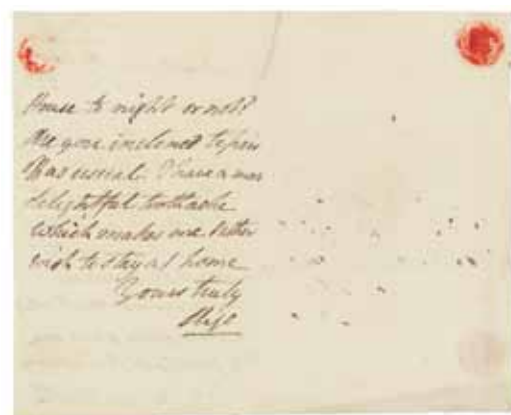 House to night or not?
Are you inclined to
as usual. I have a most
delightful toothache
which makes me rather
wish to stay at home
Yours truly